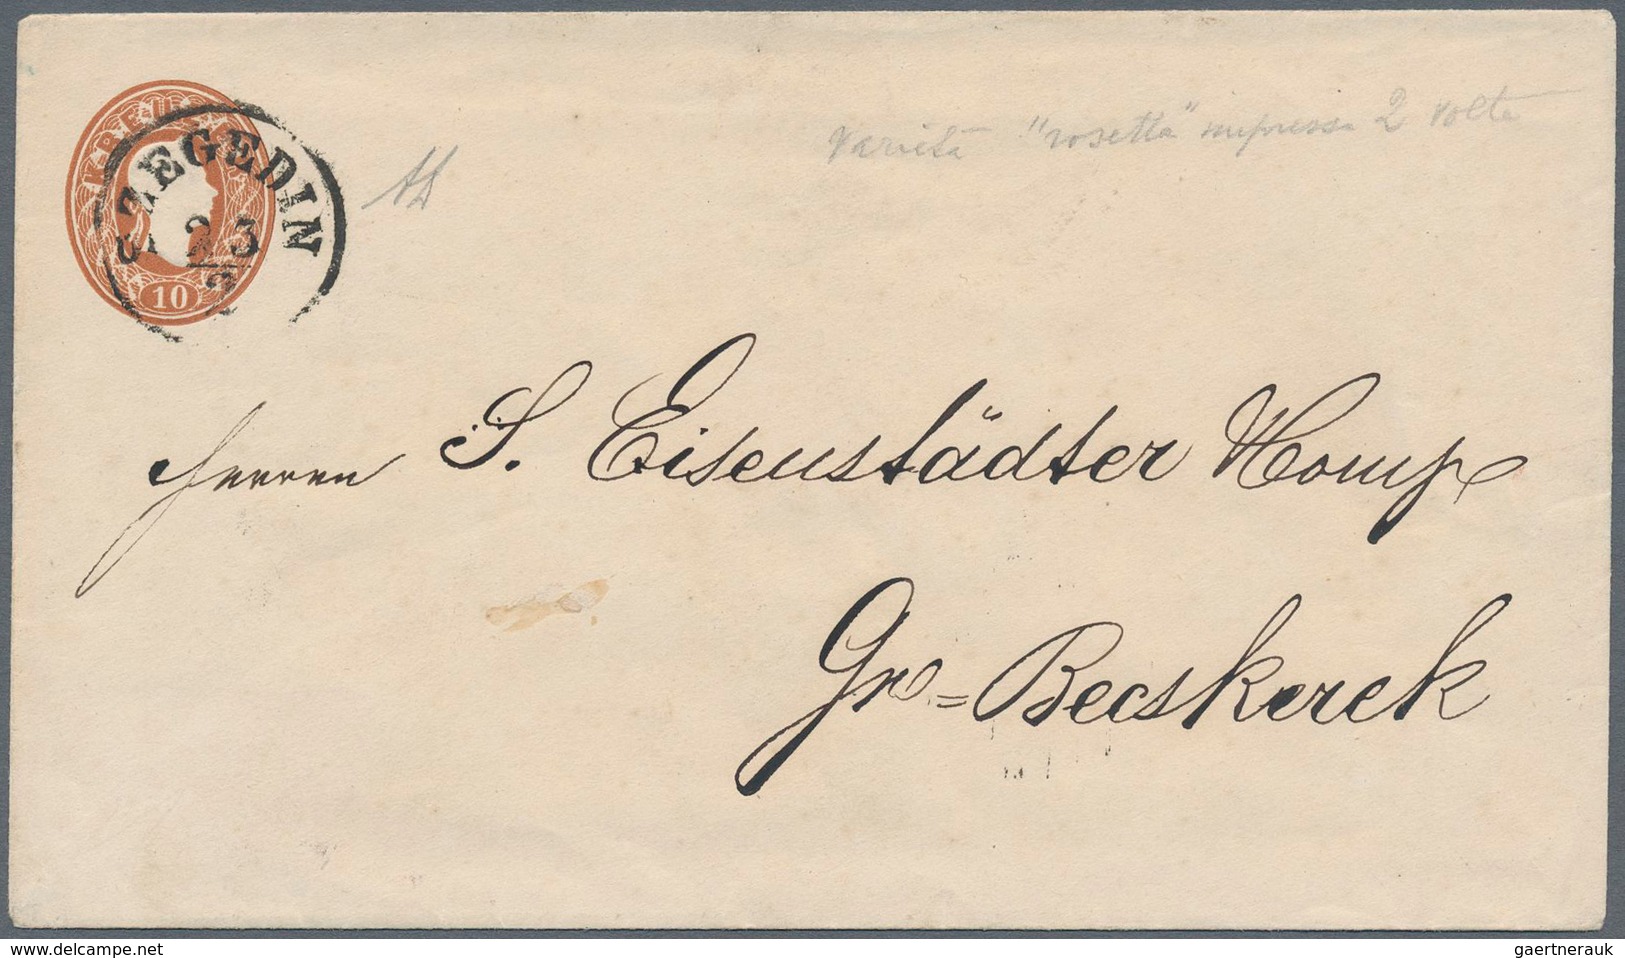 KREUZER
10
SZEGEDIN
23
Varietà "rosetta" impressa 2 volte
Herren S. Eisenstädter & Comp
Gr = Becskerek
www.delcampe.net
gaertnerauk